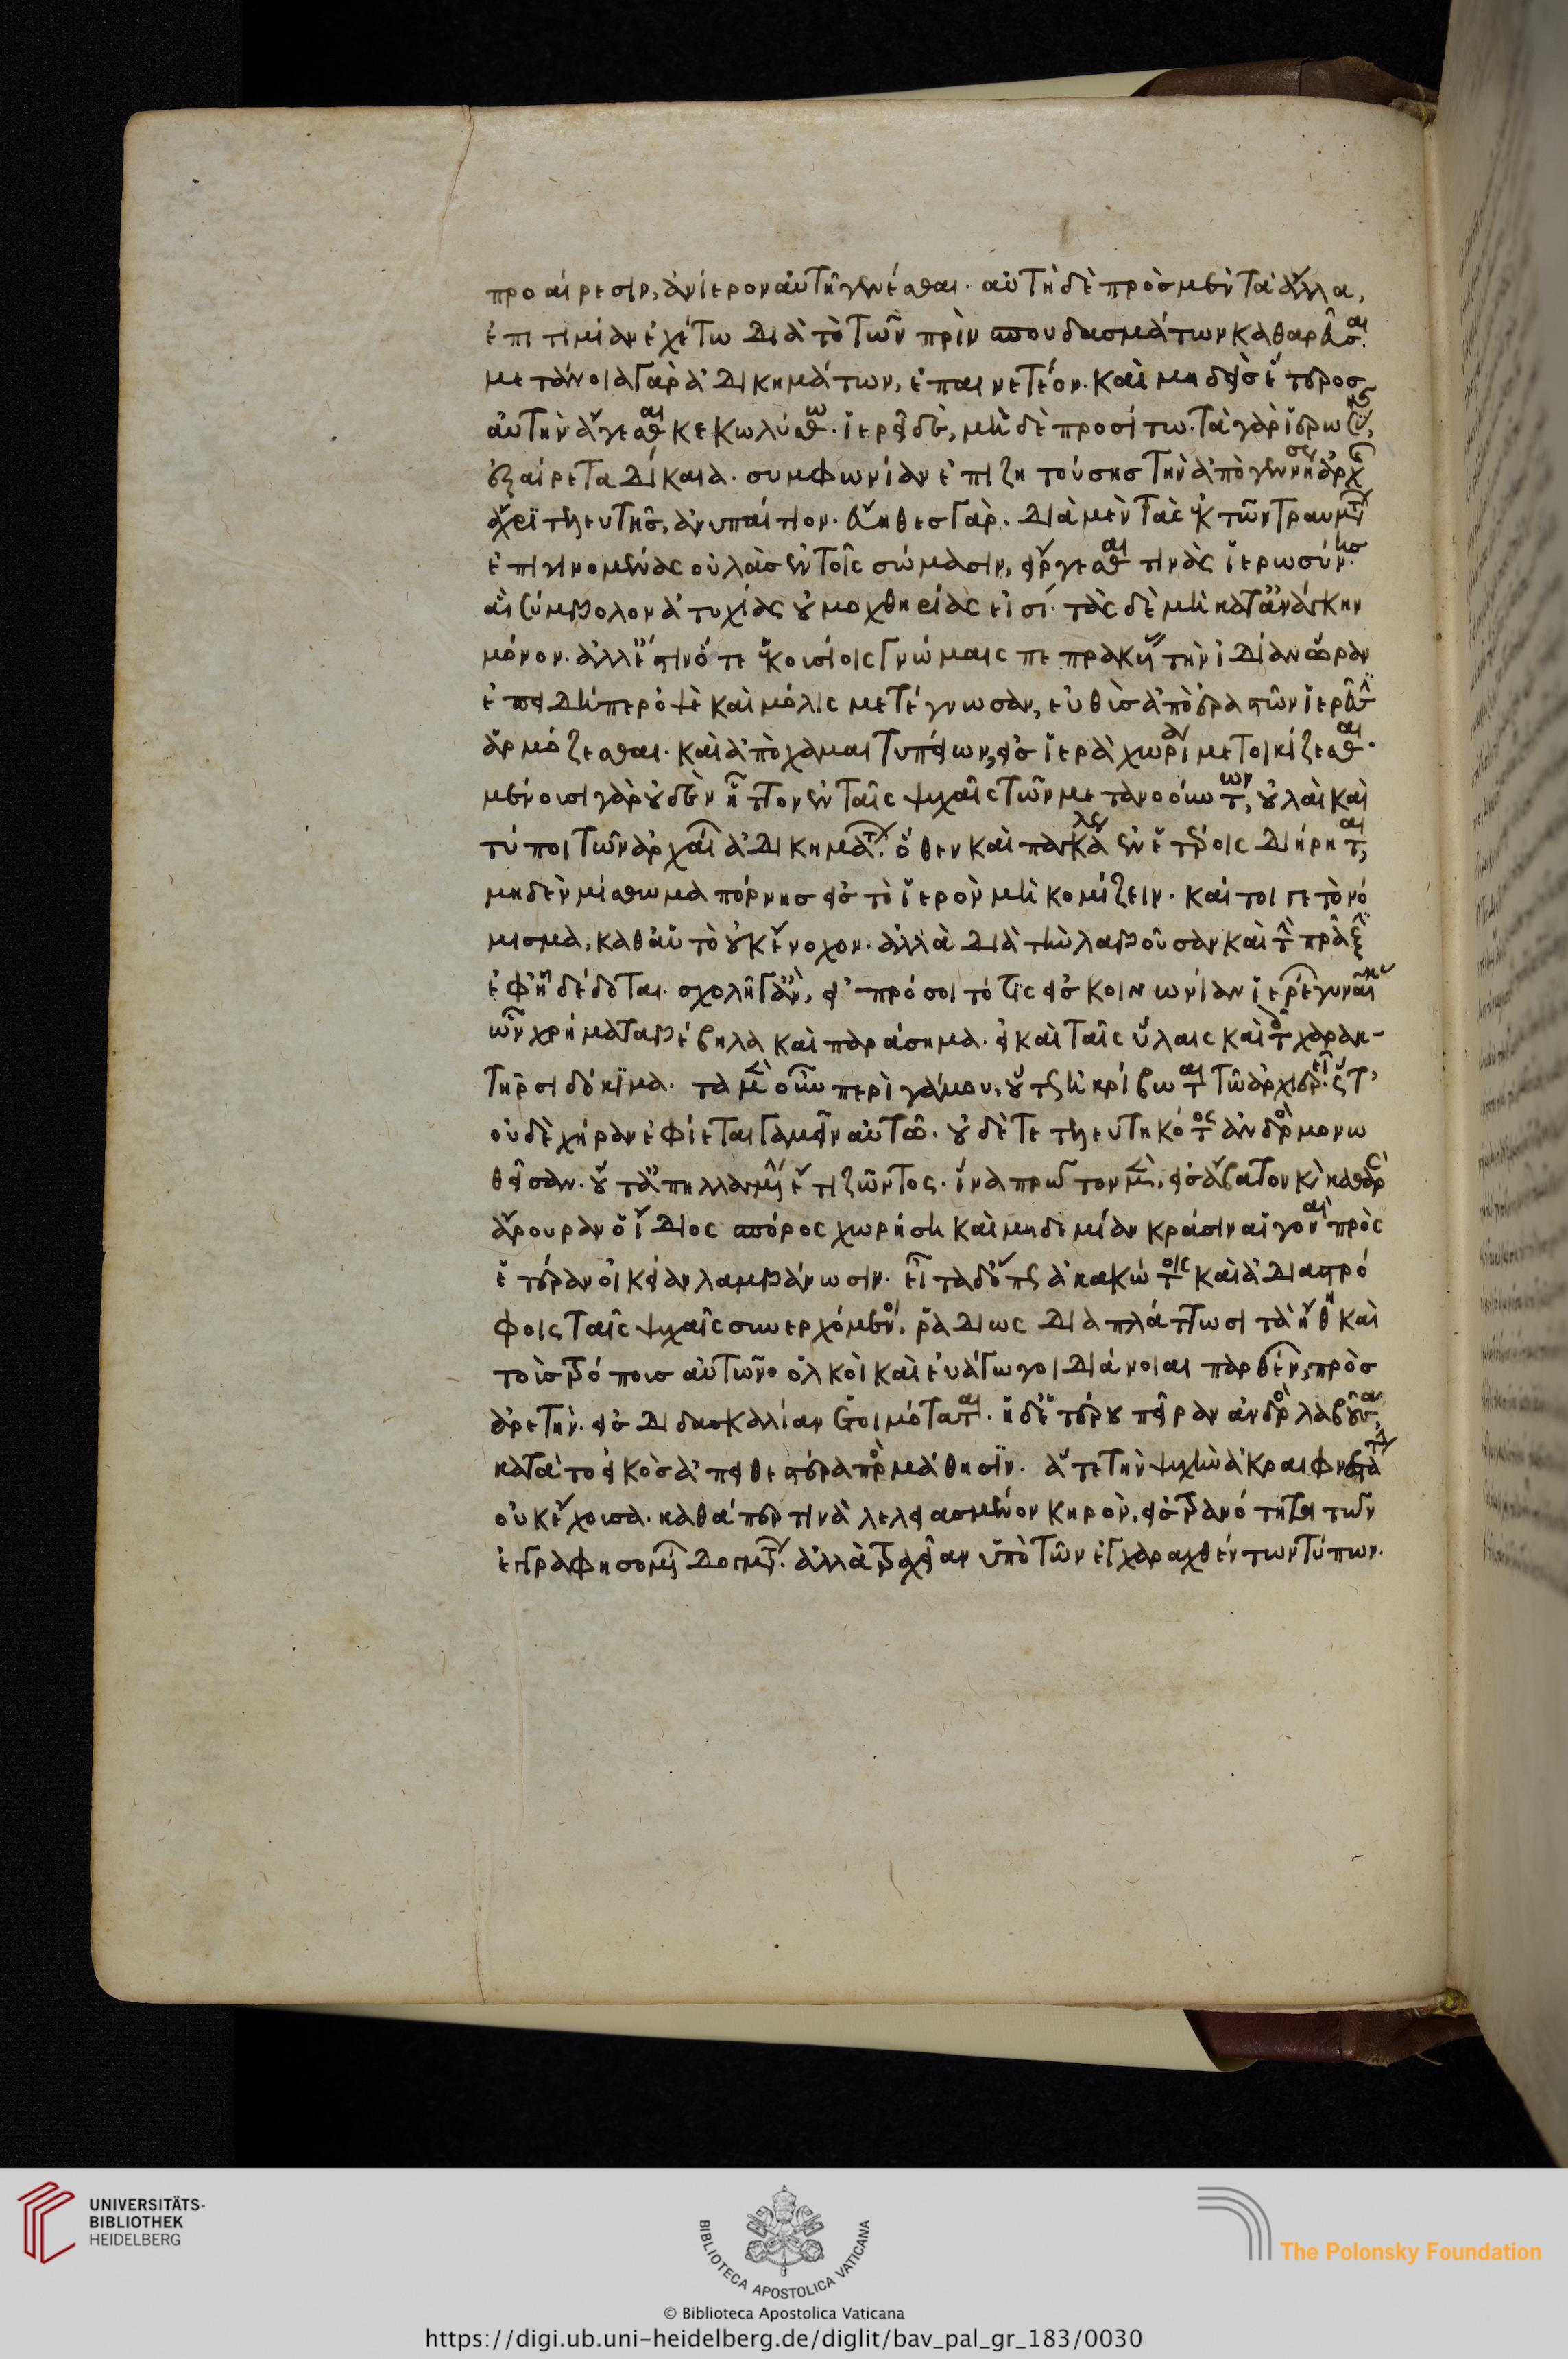 προαίρεσιν, ἀνίερον αὐτῆ γενέσθαι. αὐτὴ δὲ πρὸς μὲν τὰ ἄλλα,
ἐπιτιμίαν ἐχέτω διὰ τὸ τῶν πρὶν σπουδασμάτων καθαρεῦσαι.
μετάνοια γὰρ ἀδικημάτων, ἐπαινετέον. καὶ μηδεὶς ἕτερος
αὐτὴν ἄγεσθαι κεκωλύσθω. ἱερεῖ δὲ, μὴ δὲ προσίτω. τὰ γὰρ ἱερωσύνης,
ἐξαίρετα δίκαια. συμφωνίαν ἐπιζητούσης τὴν ἀπὸ γεννήσεως ἀρχῆς
ἄχρι τελευτῆς, ἀνυπαίτιον. εὔηθες γάρ. διὰ μὲν τὰς ἐκ τῶν τραυμάτων
ἐπιγινομένας οὐλὰς ἐν τοῖς σώμασιν, εἴργεσθαι τινὰς ἱερωσύνης.
αἳ σύμβολον ἀτυχίας οὐ μοχθηρίας εἰσί. τὰς δὲ μὴ κατ' ἀνάγκην
μόνον. ἀλλ' ἔστιν ὅτε ἑκουσίοις γνώμαις πεπρακυίας τὴν ἰδίαν ὥραν
ἐπειδήπερ ὀψὲ καὶ μόλις μετέγνωσαν, εὐθὺς ἀπὸ ἐραστῶν ἱερεῦσιν
ἁρμόζεσθαι. καὶ ἀπὸ χαμαιτυπείων, εἰς ἱερὰ χωρία μετοικίζεσθαι.
μένουσι γὰρ οὐδὲν ἧττον ἐν ταῖς ψυχαῖς τῶν μετανοούντων, οὐλαὶ καὶ
τύποι τῶν ἀρχαίων ἀδικημάτων. ὅθεν καὶ παγκάλως ἐν ἑτέροις διήρηται,
μηδὲν μίσθωμα πόρνης εἰς τὸ ἱερὸν μὴ κομίζειν. καίτοι γε τὸ νό
μισμα, καθ' αὑτὸ οὐκ ἔνοχον. ἀλλὰ διὰ τὴν λαβοῦσαν καὶ τὴν πρᾶξιν
ἐφ' ᾗ δέδοται. σχολῆ γ' ἂν, εἰ πρόσοιτό τις εἰς κοινωνίαν ἱερέων γυναῖκας
ὧν χρήματα βέβηλα καὶ παράσημα. εἰ καὶ ταῖς ὕλαις καὶ τοῖς χαρακ-
τῆρσι δόκιμα. τὰ μὲν οὖν περὶ γάμου, οὕτως ἠκρίβωται τῶ ἀρχιερεῖ. ὥστ'
οὐδὲ χήραν ἐφίεται γαμεῖν αὐτῶ. οὐδέ τε τελευτηκότος ἀνδρὸς μονω
θεῖσαν. οὔτ' ἀπηλλαγμένην ἔτι ζῶντος. ἵνα πρῶτον μὲν, εἰς ἄβατον καὶ καθαρὰν
ἄρουραν ὁ ἴδιος σπόρος χωρήση καὶ μηδεμίαν κράσιν αἱ γοναὶ πρὸς
ἑτέραν οἰκείαν λαμβάνωσιν. εἶτα δ' ὅπως ἀκακώτοις καὶ ἀδιαστρό
φοις ταῖς ψυχαῖς συνερχόμενοι, ῥαδίως διαπλάττωσι τὰ ἤθη καὶ
τοὺς τρόπους αὐτῶν ὁλκοὶ καὶ εὐάγωγοι διάνοιαι παρθένων, πρὸς
ἀρετὴν. εἰς διδασκαλίαν ἑτοιμόταται. ἡ δ' ἑτέρου πεῖραν ἀνδρὸς λαβοῦσα,
κατὰ τὸ εἰκὸς ἀπειθεστέρα πρὸς μάθησιν. ἅτε τὴν ψυχὴν ἀκραιφνεστάτην
οὐκ ἔχουσα. καθάπερ τινὰ λελειασμένον κηρὸν, εἰς τρανότητα τῶν
ἐγγραφησομένων δογμάτων. ἀλλὰ τραχεῖαν ὑπὸ τῶν ἐγχαραχθέντων τύπων.
UNIVERSITÄTS-
BIBLIOTHEK
HEIDELBERG
BIBLIOTECA APOSTOLICA VATICANA
The Polonsky Foundation
© Biblioteca Apostolica Vaticana
https://digi.ub.uni-heidelberg.de/diglit/bav_pal_gr_183/0030